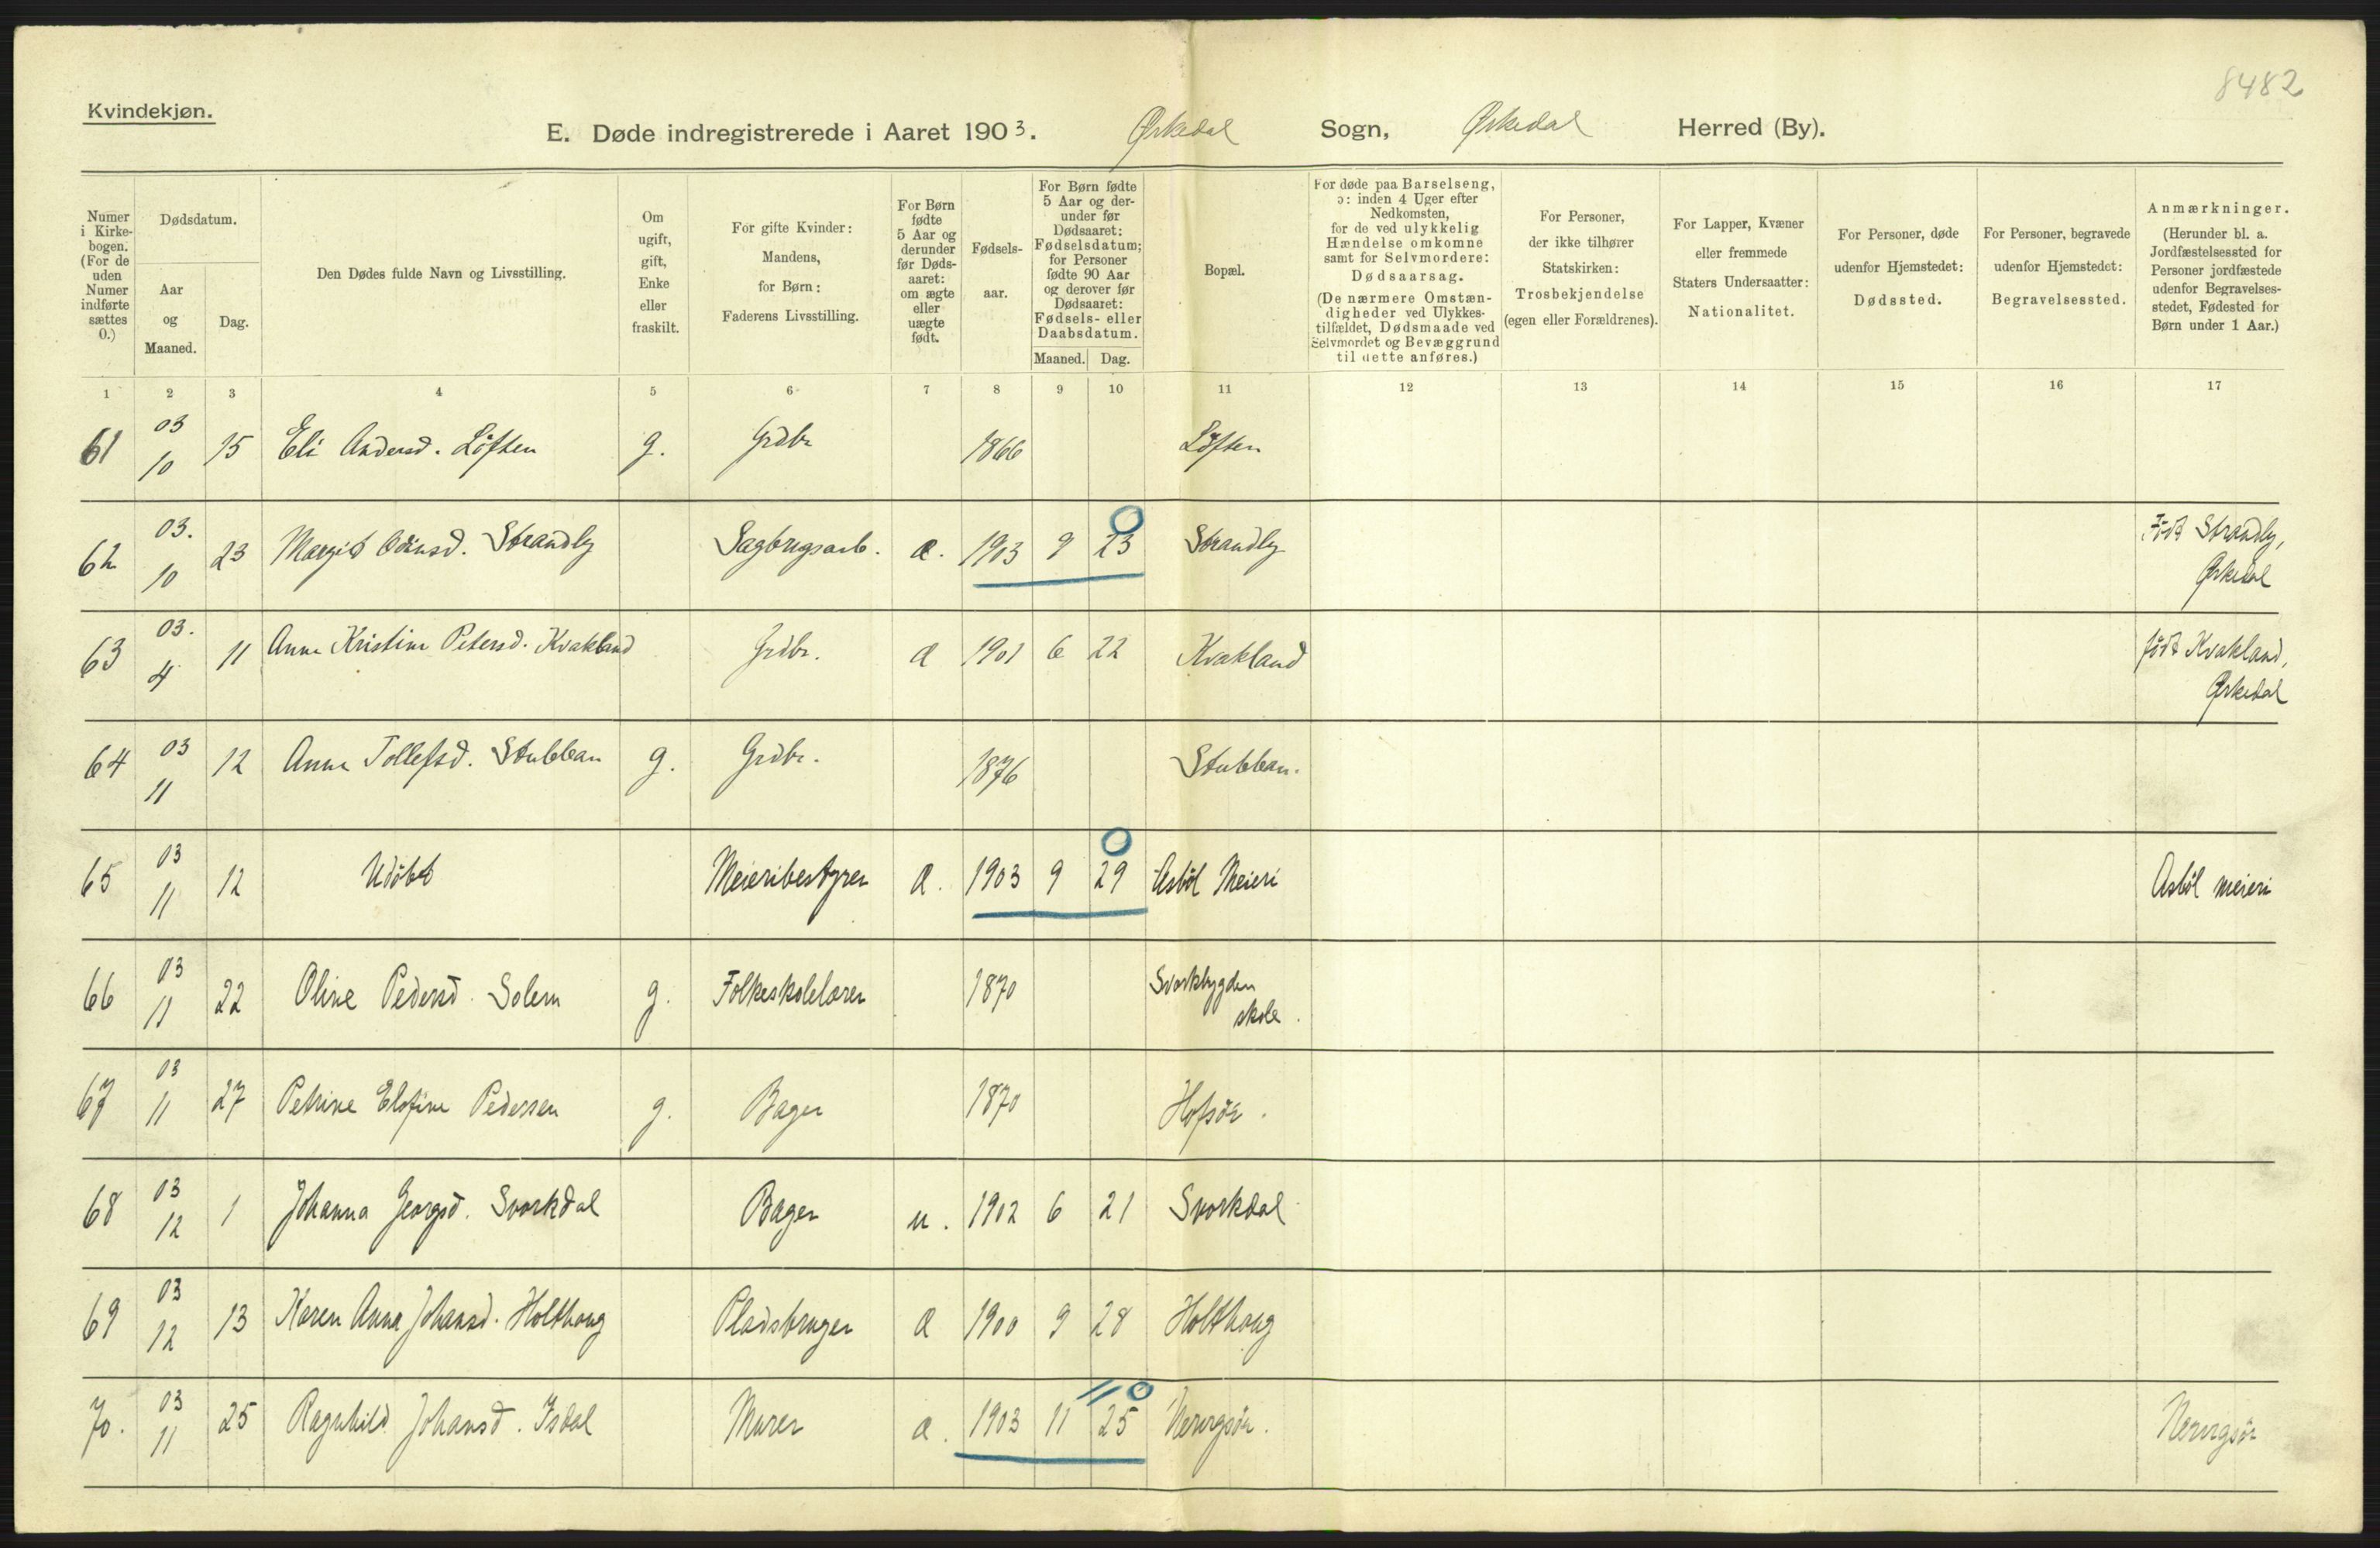 8482
Kvindekjøn.
E. Døde indregistrerede i Aaret 1903. Ørkedal Sogn, Ørkedal Herred (By).
Numer i Kirkebogen. (For de uden Numer indførte sættes 0.)
Dødsdatum.
Aar og Maaned.
Dag.
Den Dødes fulde Navn og Livsstilling.
Om ugift, gift, Enke eller fraskilt.
For gifte Kvinder: Mandens, for Børn: Faderens Livsstilling.
For Børn fødte 5 Aar og derunder før Dødsaaret: om ægte eller uægte født.
Fødselsaar.
For Børn fødte 5 Aar og derunder før Dødsaaret: Fødselsdatum; for Personer fødte 90 Aar og derover før Dødsaaret: Fødsels- eller Daabsdatum.
Maaned. Dag.
Bopæl.
For døde paa Barselseng, ɔ: inden 4 Uger efter Nedkomsten, for de ved ulykkelig Hændelse omkomne samt for Selvmordere: Dødsaarsag.
(De nærmere Omstændigheder ved Ulykkestilfældet, Dødsmaade ved Selvmordet og Bevæggrund til dette anføres.)
For Personer, der ikke tilhører Statskirken: Trosbekjendelse (egen eller Forældrenes).
For Lapper, Kvæner eller fremmede Staters Undersaatter: Nationalitet.
For Personer, døde udenfor Hjemstedet: Dødssted.
For Personer, begravede udenfor Hjemstedet: Begravelsessted.
Anmærkninger. (Herunder bl. a. Jordfæstelsessted for Personer jordfæstede udenfor Begravelsesstedet, Fødested for Børn under 1 Aar.)
1 2 3 4 5 6 7 8 9 10 11 12 13 14 15 16 17
61 03 10 15 Eli Andersd. Löften g. Grdbr 1866 Löften
62 03. 10 23 Margit Odinsd. Strandly Sagbrugsarb. æ. 1903 9 23 Strandly Født Strandly, Ørkedal
63 03. 4 11 Anne Kristine Petersd. Kvakland Grdbr. æ 1901 6 22 Kvakland født Kvakland, Ørkedal
64 03 11 12 Anne Tollefsd. Stubban g. Grdbr. 1876 Stubban.
65 03 11 12 Udöbt Meieribestyrer æ. 1903 9 29 Asböl Meieri Asböl meieri
66 03 11 22 Oline Pedersd. Solem g. Folkeskolelærer 1870 Svorkbygden skole.
67 03 11 27 Petrine Elefine Pedersen g. Bager 1870 Hofsör.
68 03 12 1 Johanna Georgsd. Svorkdal Bager u. 1902 6 21 Svorkdal
69 03 12 13 Karen Anna Johansd. Holthaug Pladsbruger æ 1900 9 28 Holthaug
70. 03 11 25 Ragnhild Johansd. Isdal Murer æ. 1903 11 25